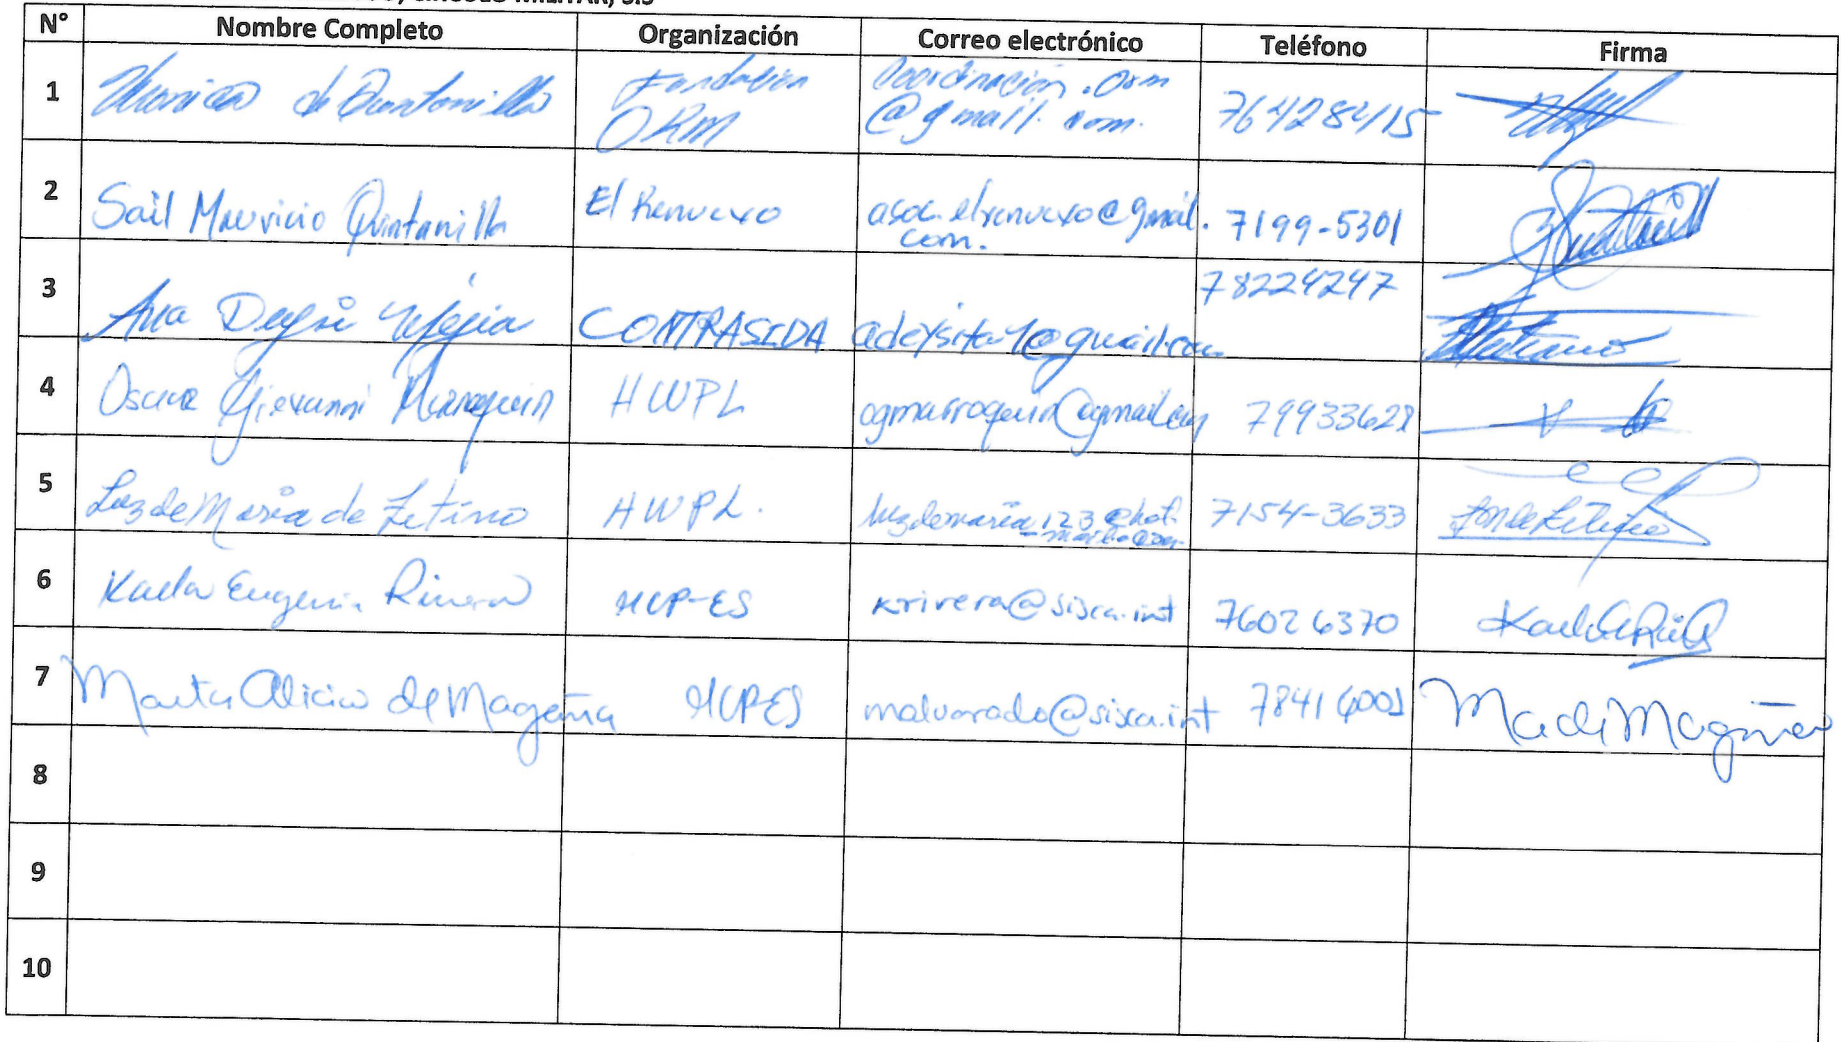 CÍRCULO MILITAR, S.S
N° Nombre Completo Organización Correo electrónico Teléfono Firma
1 de Quintanilla Fundación ORM Coordinación.orm @gmail.com. 76428415
2 Saíl Mauricio Quintanilla El Renuevo asoc.elrenuevo@gmail.com. 7199-5301
3 Ana Deysi Mejía CONTRASIDA adeysita1@gmail.com 78224247
4 Oscar Giovanni Marroquin HWPL ogmarroquin@gmail.com 79933628
5 Luz de María de Zetino HWPL. luzdemaria123@hotmail.com 7154-3633
6 Karla Eugenia Rivera MCP-ES krivera@sisca.int 76026370
7 Marta Alicia de Magaña MCPES malvarado@sisca.int 78416001
8
9
10